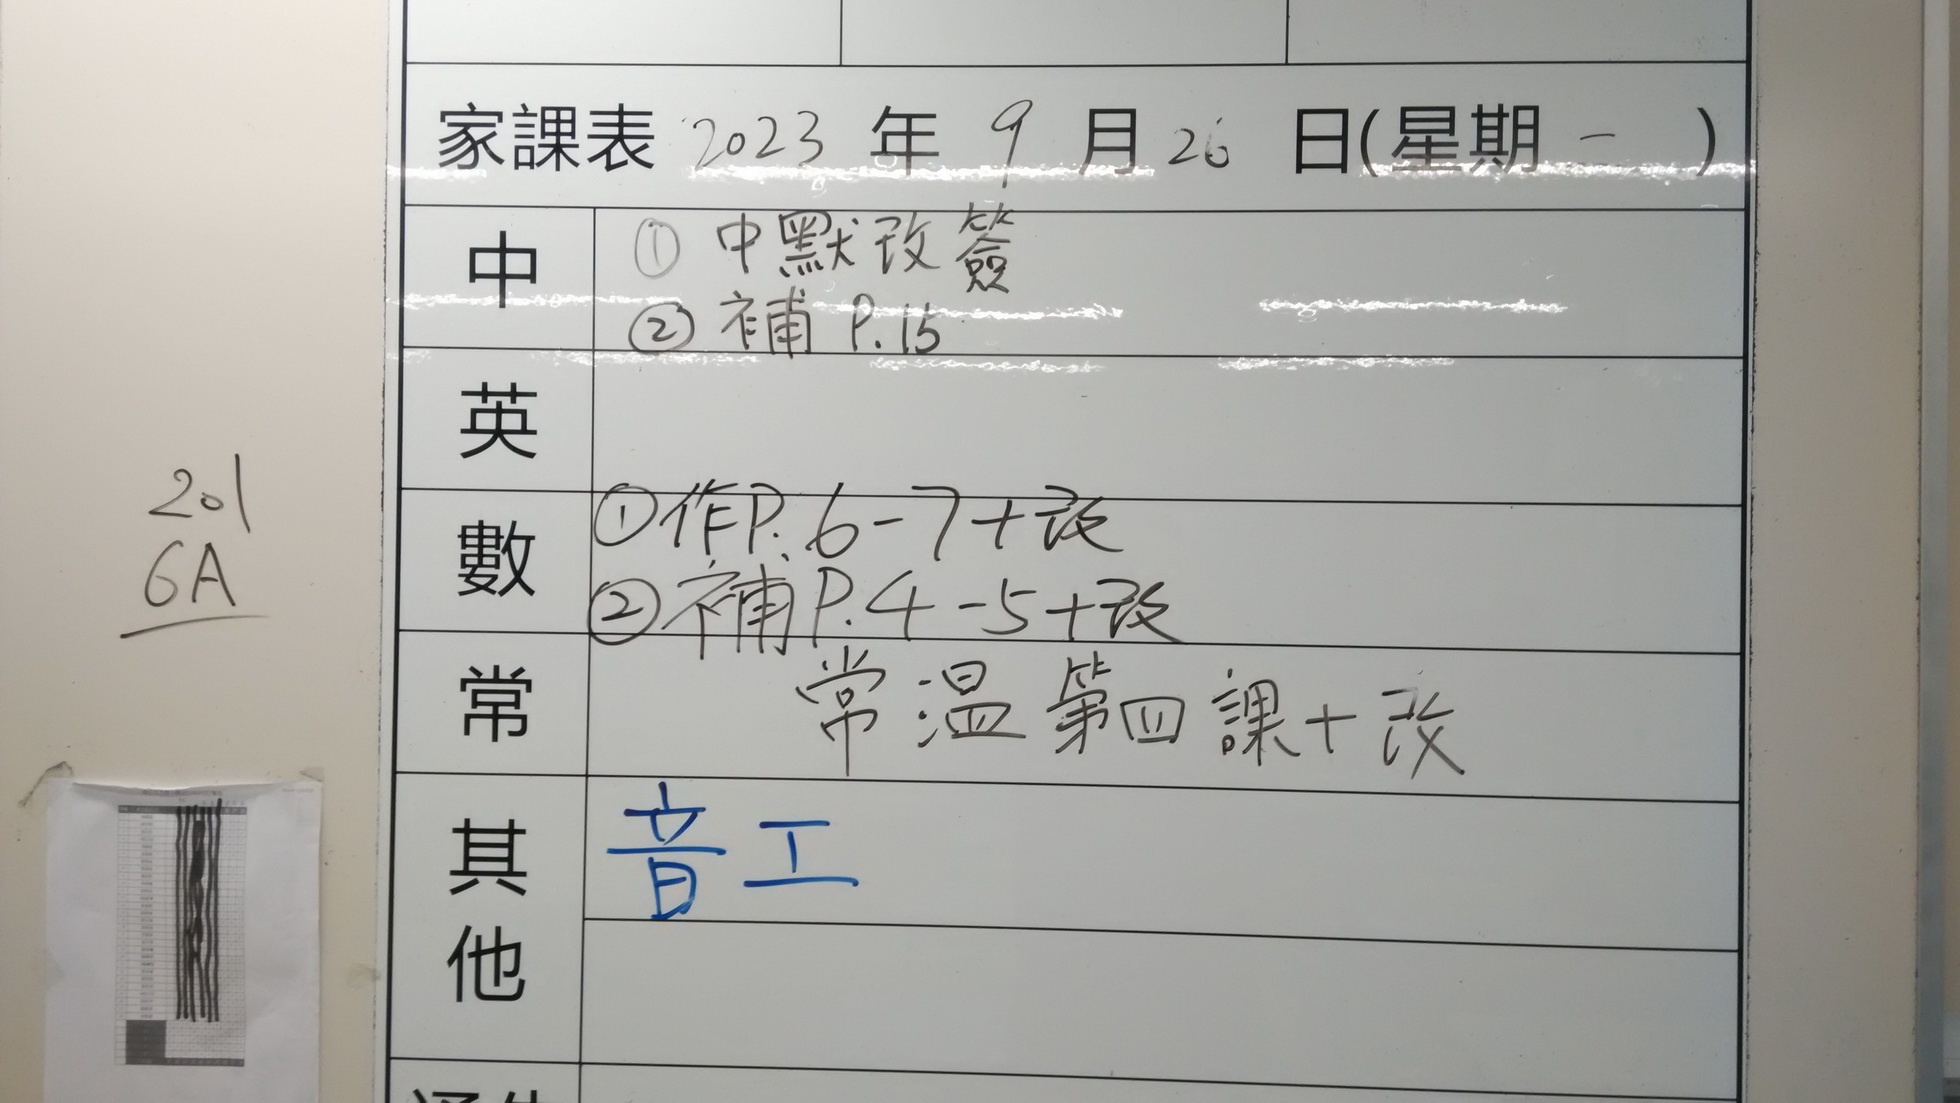 家課表 2023 年 9 月 26 日(星期 一 )
中
① 中默改簽
② 補 P.15
英
201
6A
數
①作P.6-7+改
②補P.4-5+改
常
常溫第四課+改
其他
音工